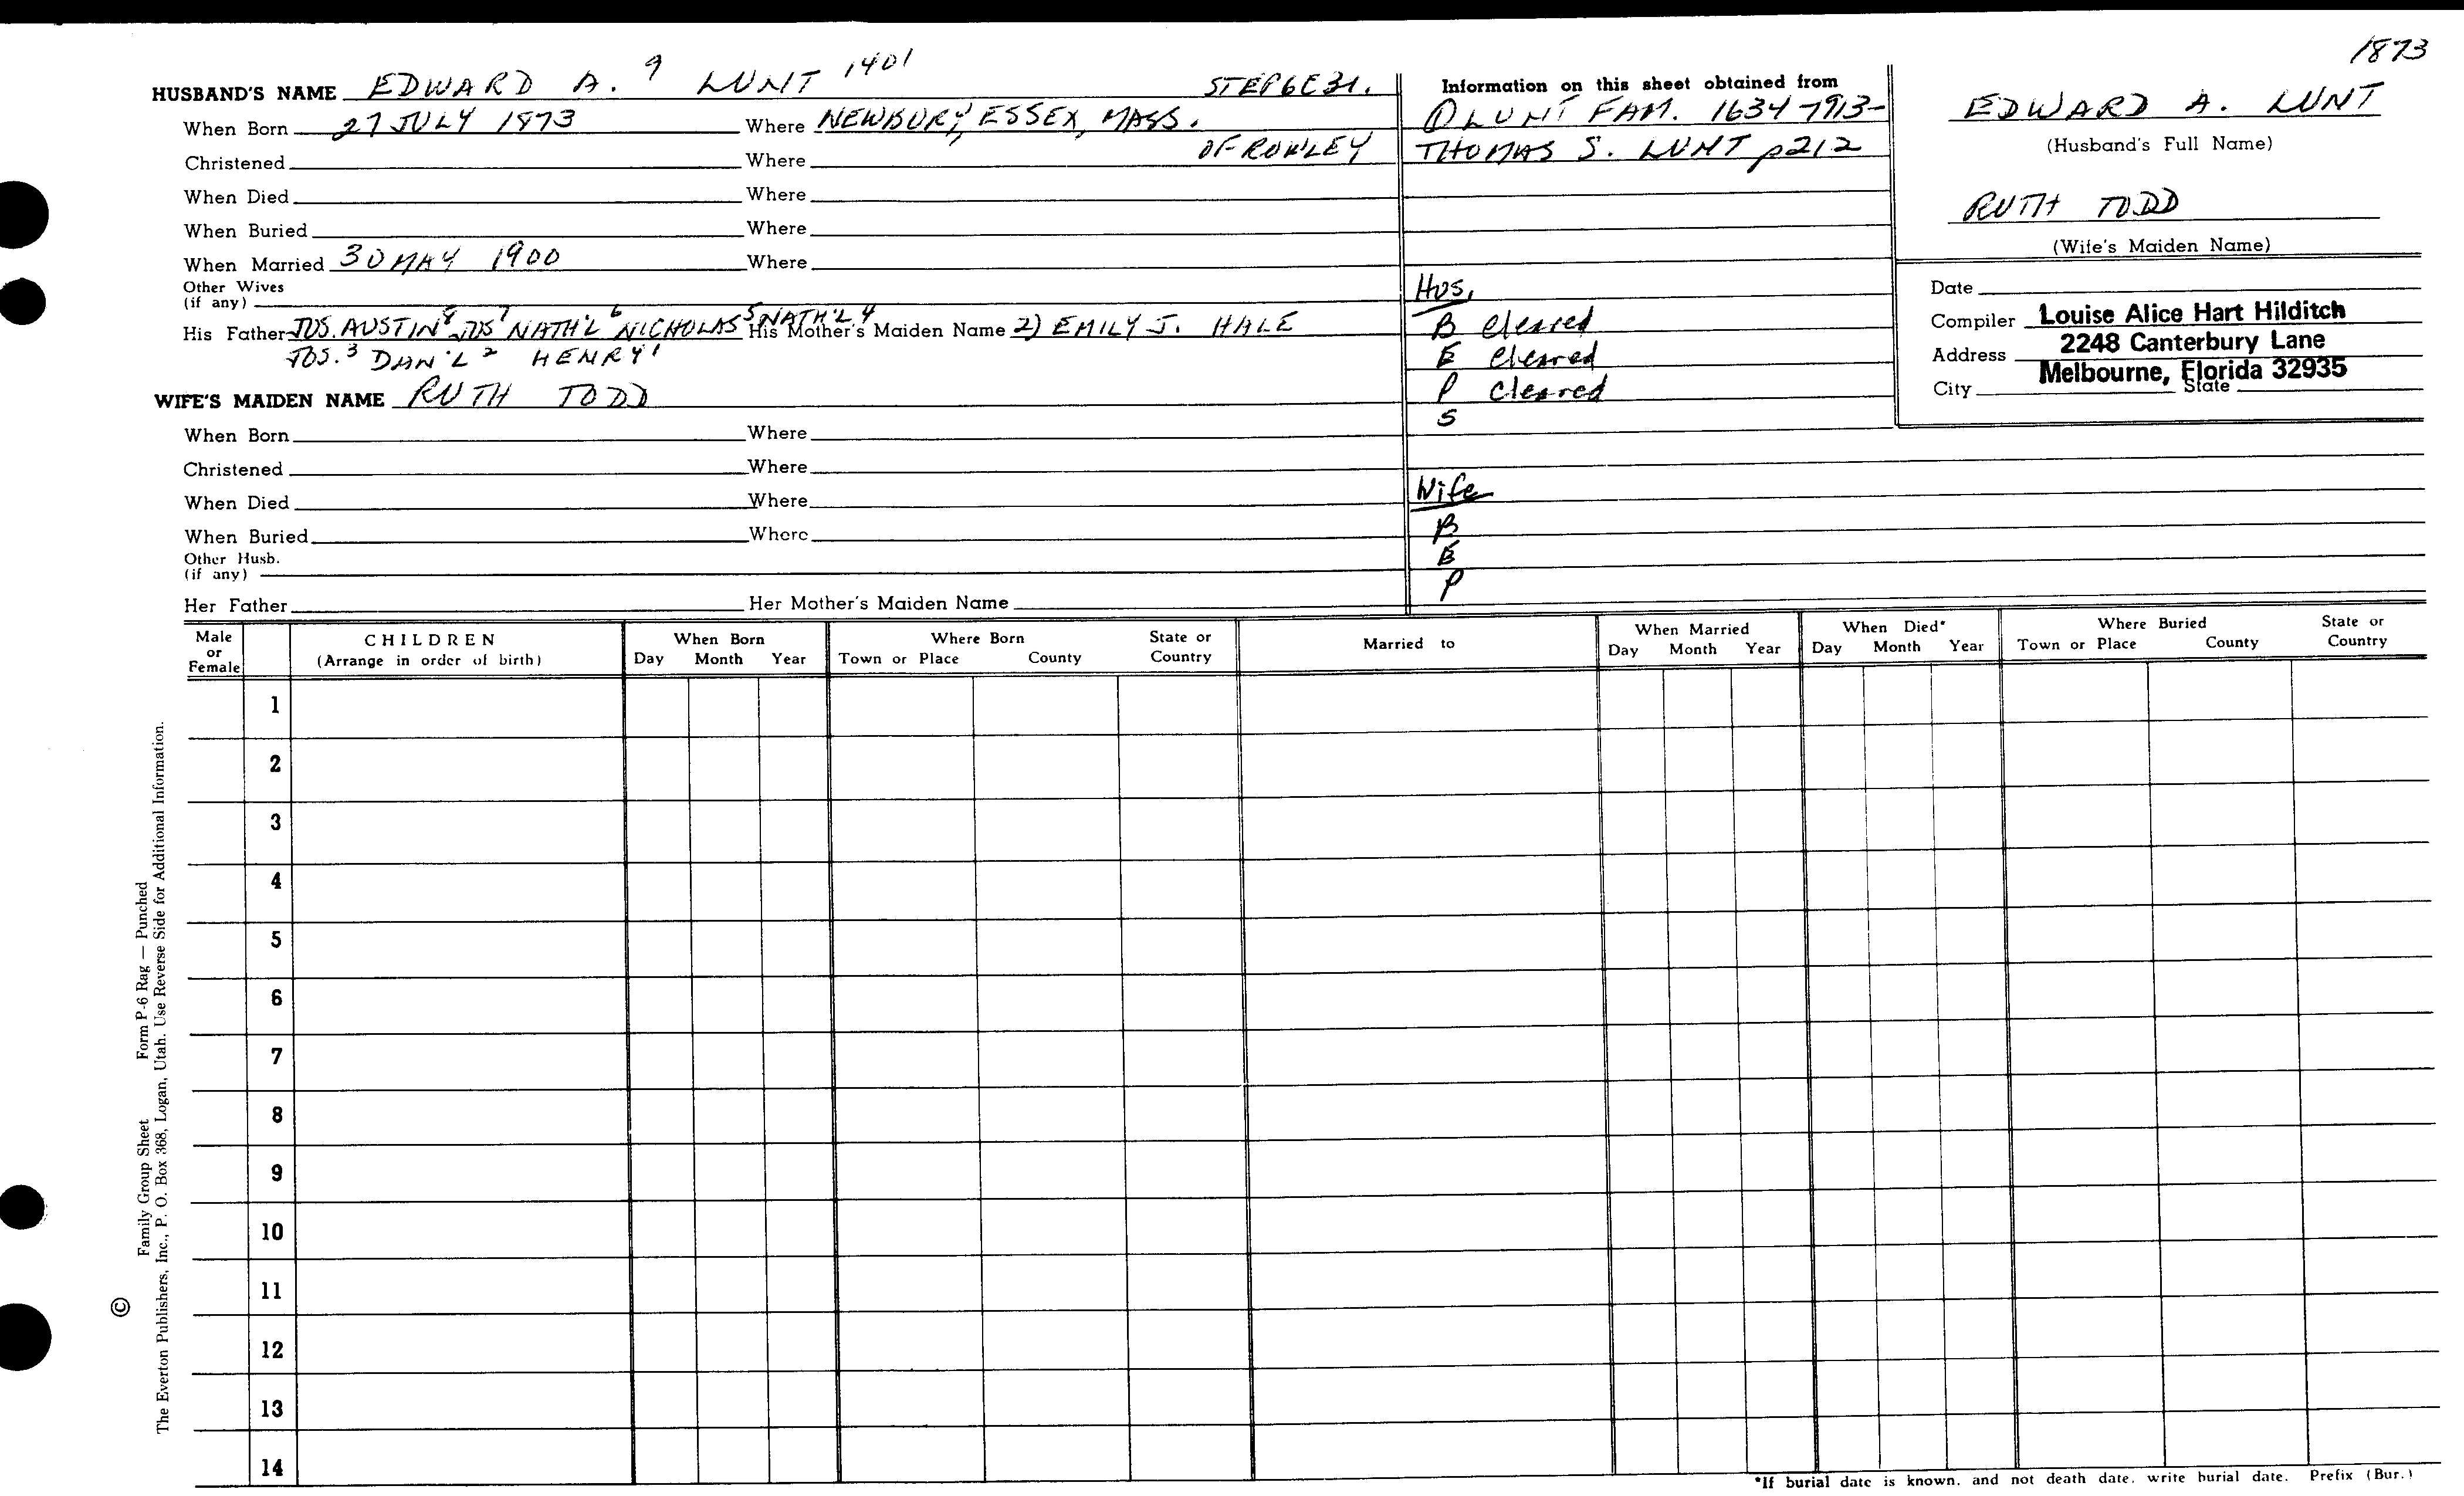 1873
HUSBAND'S NAME EDWARD A. 9 LUNT 1401 STEP6E31.
When Born 27 JULY 1873 Where NEWBURY, ESSEX, MASS.
Christened Where OF ROWLEY
When Died Where
When Buried Where
When Married 30 MAY 1900 Where
Other Wives
(if any)
His Father JOS. AUSTIN 8 JOS 7 NATH'L 6 NICHOLAS 5 NATH'L 4 His Mother's Maiden Name 2) EMILY J. HALE
JOS. 3 DAN'L 2 HENRY 1
WIFE'S MAIDEN NAME RUTH TODD
When Born Where
Christened Where
When Died Where
When Buried Where
Other Husb.
(if any)
Her Father Her Mother's Maiden Name
Information on this sheet obtained from
LUNT FAM. 1634-1913-
THOMAS S. LUNT p212
Hus,
B Cleared
E Cleared
P Cleared
S
Wife
B
E
P
EDWARD A. LUNT
(Husband's Full Name)
RUTH TODD
(Wife's Maiden Name)
Date
Compiler Louise Alice Hart Hilditch
Address 2248 Canterbury Lane
City Melbourne, Florida 32935 State
Male or Female
CHILDREN
(Arrange in order of birth)
When Born
Day Month Year
Where Born
Town or Place County State or Country
Married to
When Married
Day Month Year
When Died*
Day Month Year
Where Buried
Town or Place County State or Country
1
2
3
4
5
6
7
8
9
10
11
12
13
14
*If burial date is known, and not death date, write burial date. Prefix (Bur.)
Family Group Sheet Form P-6 Rag — Punched
© The Everton Publishers, Inc., P. O. Box 368, Logan, Utah. Use Reverse Side for Additional Information.